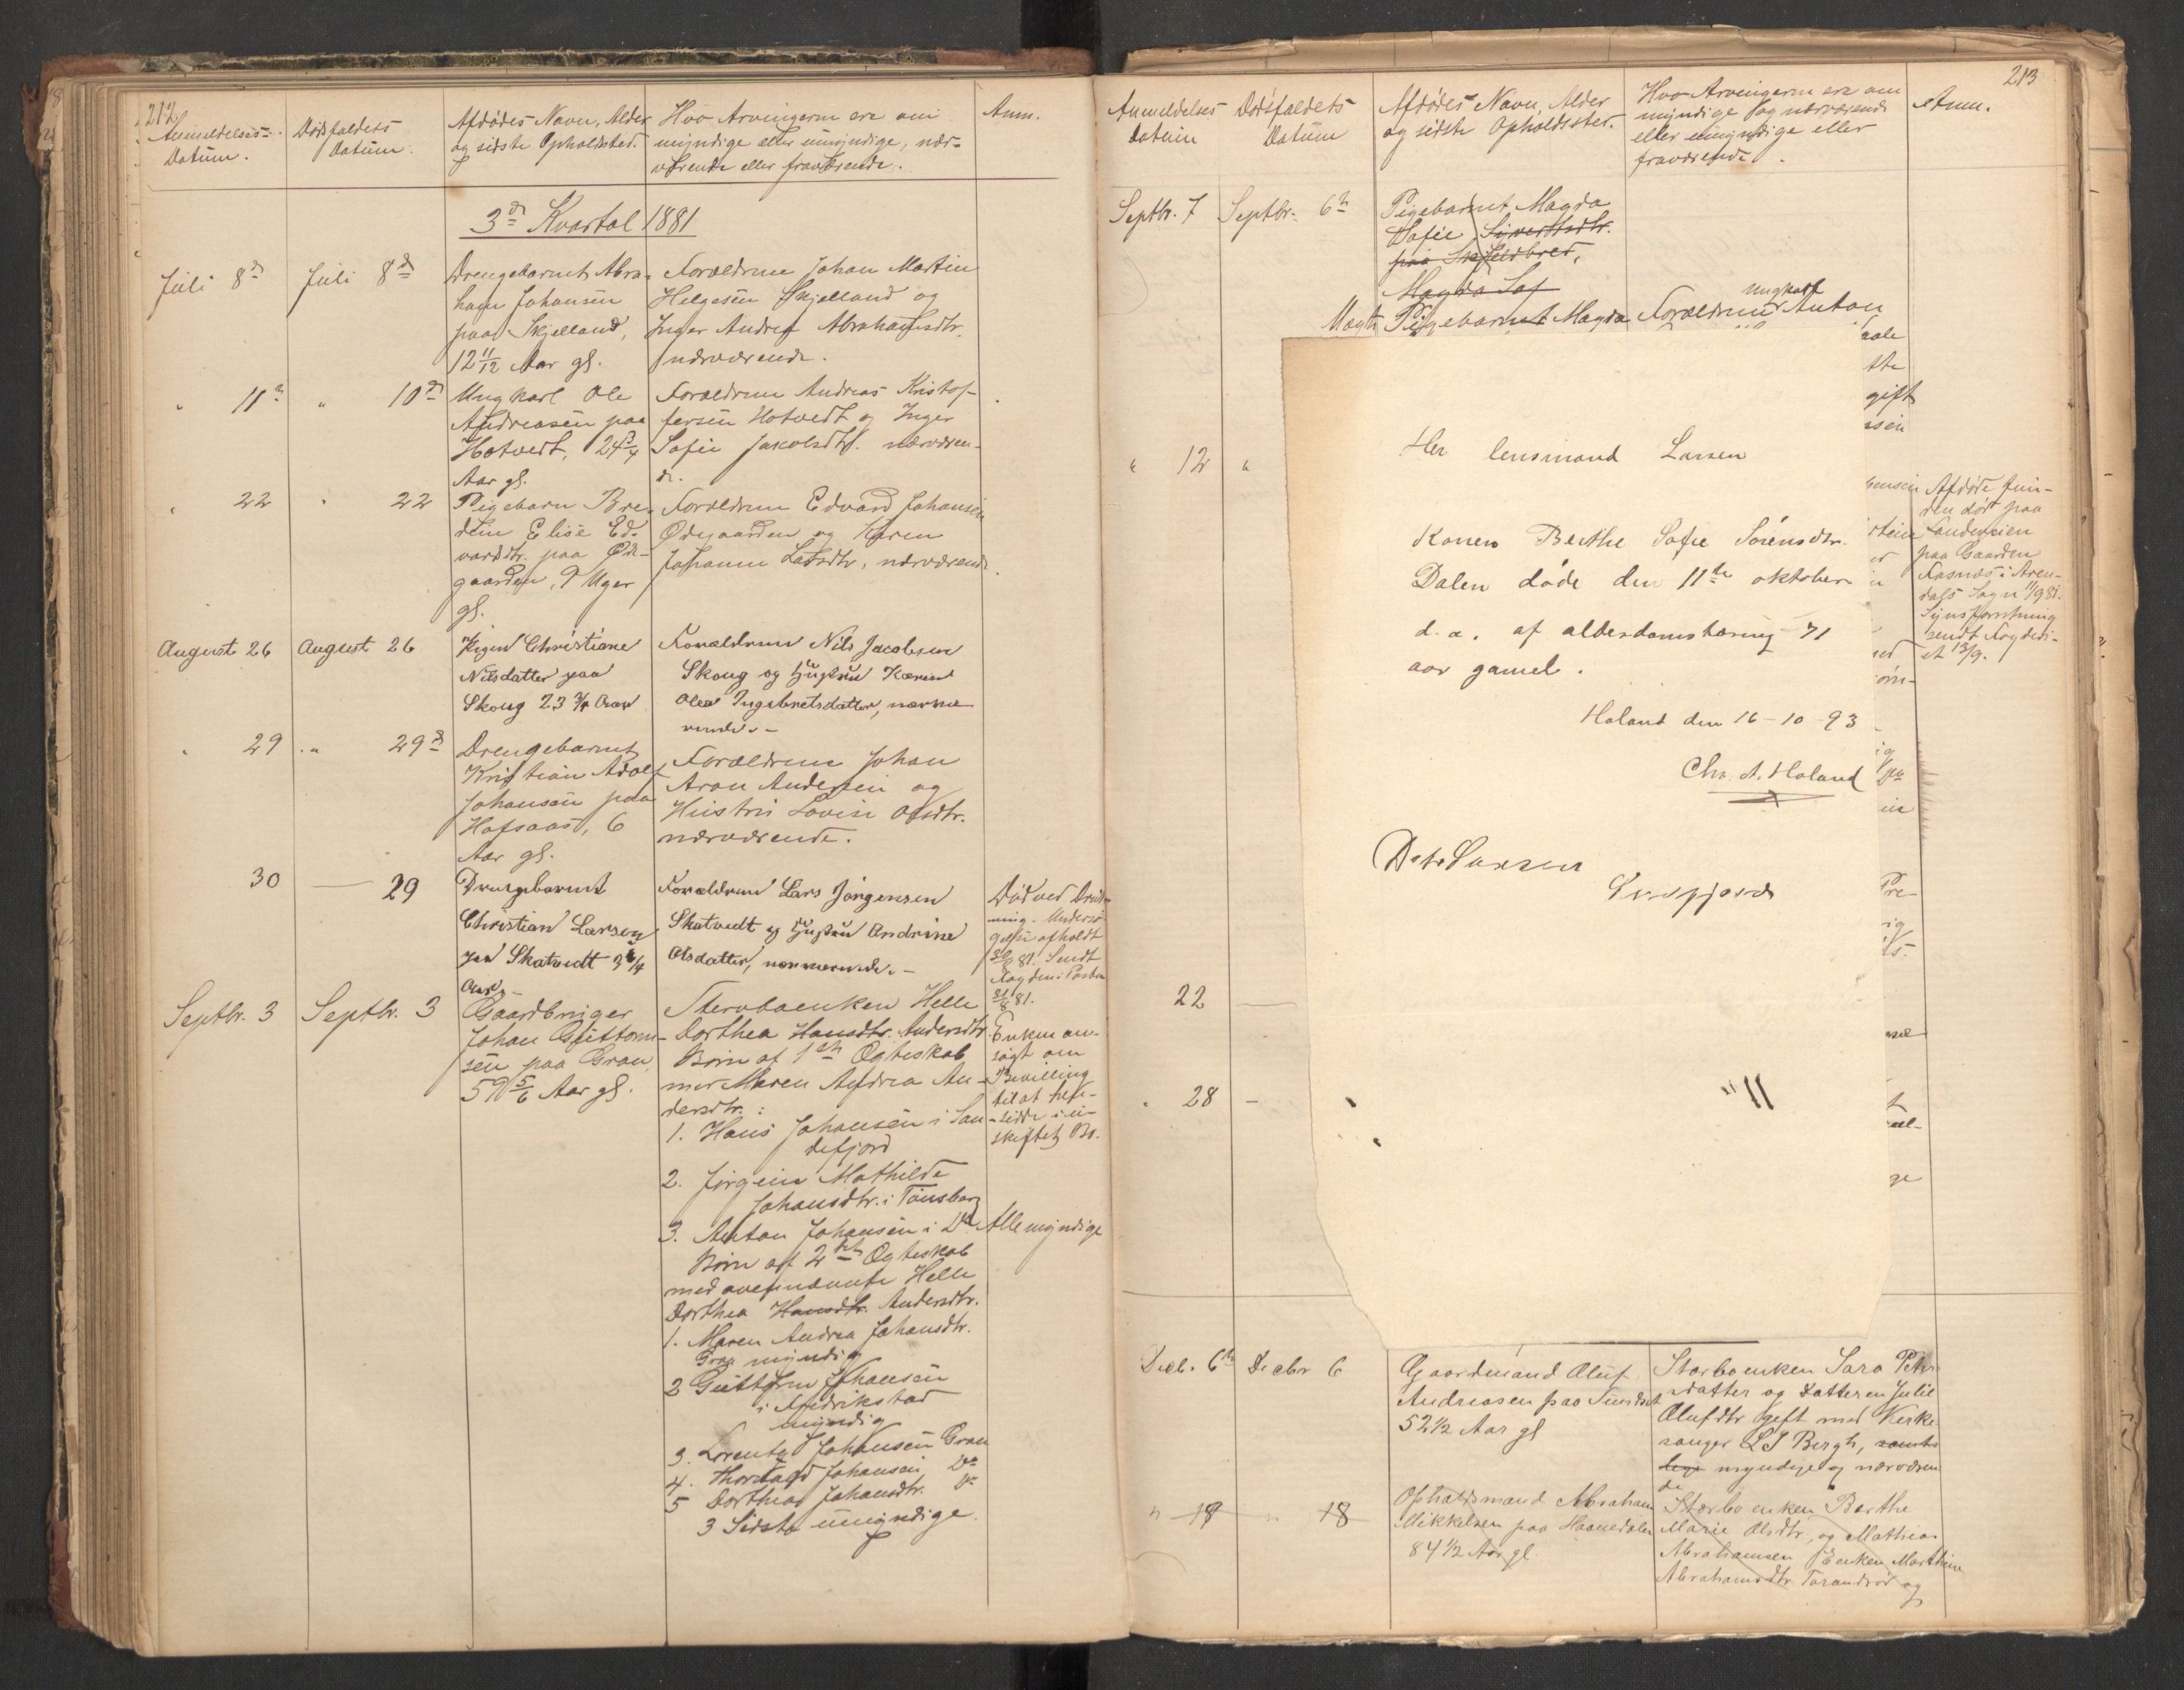 212
Anmeldelses-
Datum.
Dødsfaldets
Datum.
Afdødes Navn, Alder
og sidste Opholdssted.
Hvo Arvingerne ere om
myndige eller umyndige, nær-
værende eller fraværende.
Anm.
3die Kvartal 1881
Juli 8de
Juli 8de
Drengebarnet Abra-
ham Johansen
paa Skjelland,
12 11/12 Aar gl.
Forældrene Johan Martin
Helgesen Skjelland og
Inger Andrea Abrahamsdtr.
nærværende.
" 11te
" 10de
Ungkarl Ole
Andreasen paa
Hotvedt, 24 3/4
Aar gl.
Forældrene Andreas Kristof-
fersen Hotvedt og Inger
Sofie Jakobsdtr. nærværen-
de.
" 22
" 22
Pigebarn Bre-
dine Elise Ed-
vardsdtr. paa Øde-
gaarden, 9 Uger
gl.
Forældrene Edvard Johansen
Ødegaarden og Karen
Johanne Larsdtr, nærværende.
August 26
August 26
Pigen Christiane
Nilsdatter paa
Skoug 23 3/4 Aar
Forældrene Nils Jacobsen
Skoug og Hustru Karen
Olea Ingebretsdatter, nærvæ
rende.-
" 29
" 29de
Drengebarnet
Kristian Adolf
Johansen paa
Hafsaas, 6
Aar gl.
Forældrene Johan
Aron Andersen og
Hustru Lovise Olsdtr.
nærværende.
30
— 29
Drengebarnet
Christian Larsen
paa Skatvedt 3 1/4
Aar.
Forældrene Lars Jørgensen
Skatvedt og Hustru Andrine
Olsdatter, nærværende.-
Død ved Druk-
ning. Undersø-
gelse afholdt
30/8 81. Sendt
Fogden i Posten
31/8 81.
Septbr. 3
Septbr. 3
Gaardbruger
Johan Guttorm-
sen paa Gran,
59 5/6 Aar gl.
Stervboenken Helle
Dorthea Hansdtr. Andersdtr.
Børn af 1ste Ægteskab
med Maren Andrea An-
dersdtr.:
1. Hans Johansen i San-
defjord
2. Jørgine Mathilde
Johansdtr. i Tønsberg
3. Anton Johansen i Do
Børn af 2det Ægteskab
med ovennævnte Helle
Dorthea Hansdtr. Andersdtr.
1. Maren Andrea Johansdtr.
Gran myndig
2 Guttorm Johansen
i Fredrikstad
myndig
3. Lorents Johansen Gran
4. Thorvald Johansen Do
5 Dorthea Johansdtr. Do
3 Sidste umyndige.
Enken an-
søgt om
Bevilling
til at hen-
sidde i u-
skiftet Bo.
Alle myndige
213
Anmeldelses
Datum
Dødsfaldets
Datum
Afdødes Navn, Alder
og sidste Opholdssted.
Hvo Arvingerne ere om
myndige og nærværende
eller umyndige eller
fraværende.
Anm.
Septbr. 7
Septbr. 6te
Pigebarnet Magda
Sofie Syvertsdtr.
paa Skjeldbred,
Magda Sof
Pigebarnet Magda
Forældrene Ungkarl Anton
aale
ste
gift
ssen
" 12
"
Afdøde fun-
den død paa
Landeveien
paa Gaarden
i Aren-
dals Sogn 11/9 81.
Synsforretning
sendt Fogderi-
et 13/9.
Her lensmand Larsen
Konen Berthe Sofie Sørensdtr.
Dalen døde den 11te oktober
d.a. af alderdomstæring 71
aar gamel.
Holand den 16-10-93
Chr. A. Holand
22 —
" 28 —
Decbr. 6te
Decbr 6
Gaardmand Oluf
Andreasen paa Sundset
52 1/2 Aar gl
Stærboenken Sara Peter-
sdatter og Datteren Julie
Olufdtr gift med Kirke
sanger L J Bergh, samt
lige myndige og nærværen
de
" 18
" 18
Opholdsmand Abraham
Mikkelsen paa Haanedalen
84 1/2 Aar gl.
Stærboenken Berthe
Marie Olsdtr, og Mathias
Abrahamsen Enken Marthine
Abrahamsdtr Tarandrød og